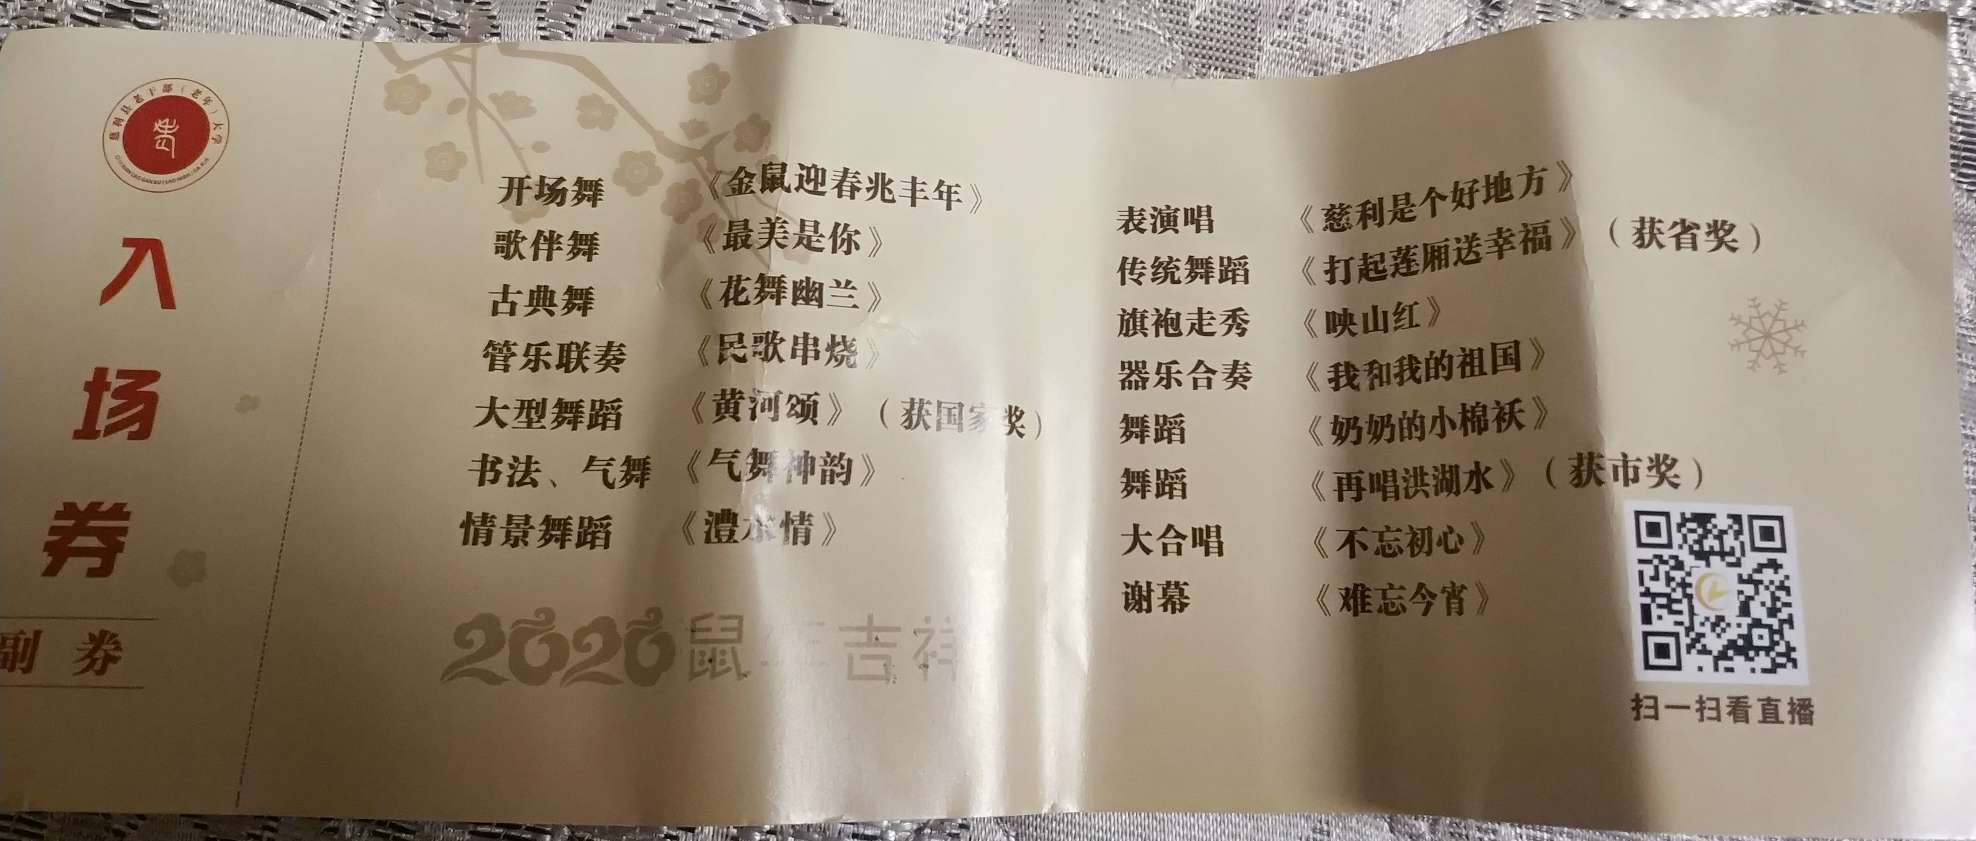 慈利县老干部（老年）大学
入场券
副券
开场舞 《金鼠迎春兆丰年》
歌伴舞 《最美是你》
古典舞 《花舞幽兰》
管乐联奏 《民歌串烧》
大型舞蹈 《黄河颂》（获国家奖）
书法、气舞 《气舞神韵》
情景舞蹈 《澧水情》
2020鼠年吉祥
表演唱 《慈利是个好地方》
传统舞蹈 《打起莲厢送幸福》（获省奖）
旗袍走秀 《映山红》
器乐合奏 《我和我的祖国》
舞蹈 《奶奶的小棉袄》
舞蹈 《再唱洪湖水》（获市奖）
大合唱 《不忘初心》
谢幕 《难忘今宵》
扫一扫看直播